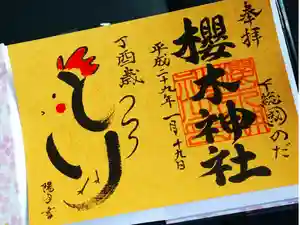 奉拝
下総國のだ
櫻木神社
平成二十九年一月十九日
丁酉歳
とり